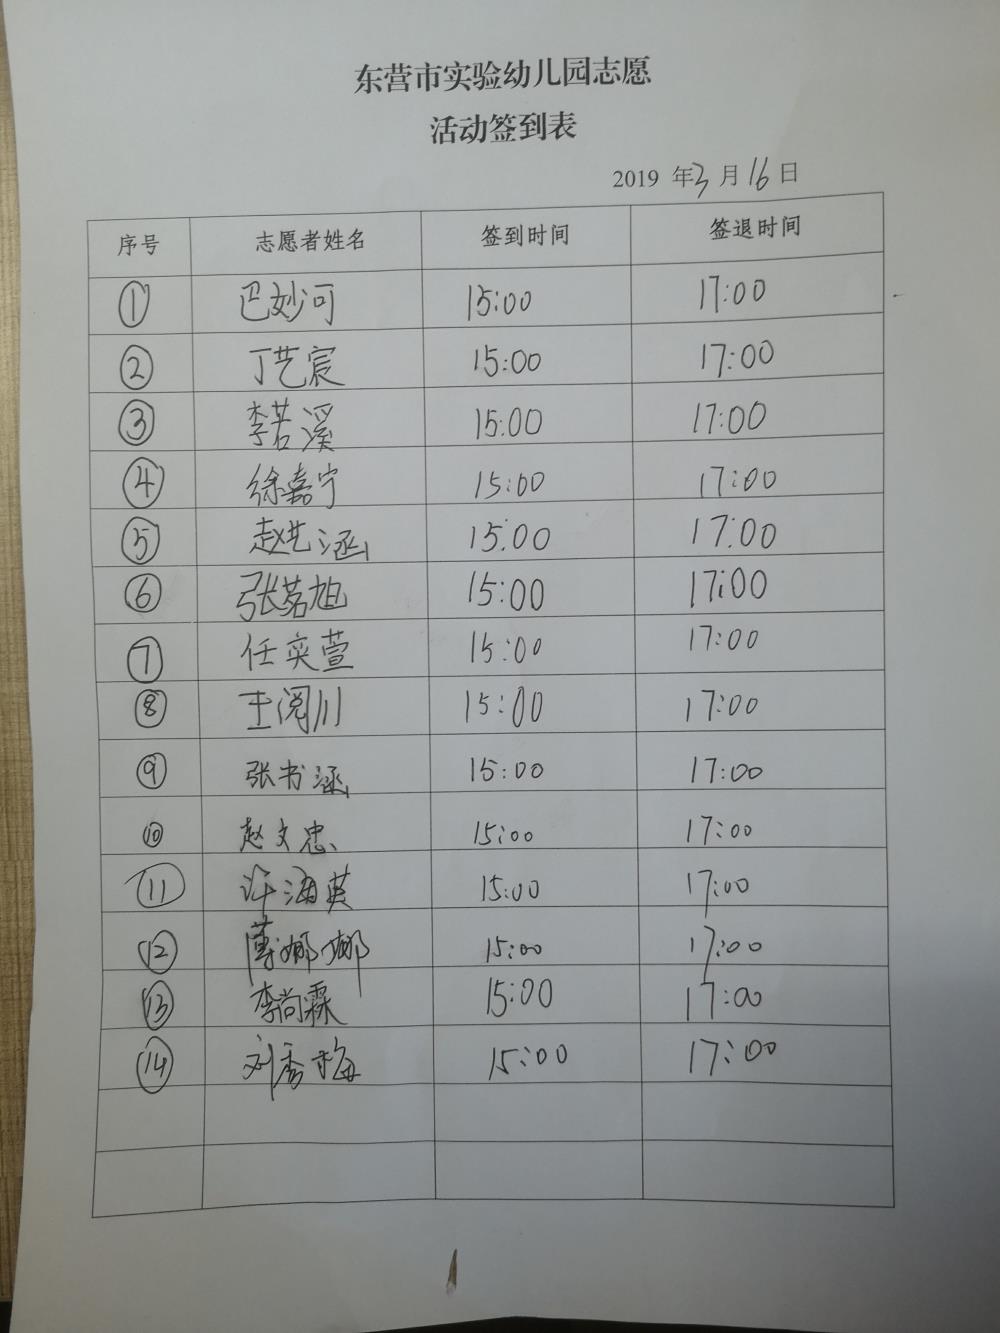 东营市实验幼儿园志愿
活动签到表
2019 年3月16日
序号 志愿者姓名 签到时间 签退时间
① 巴妙可 15:00 17:00
② 丁艺宸 15:00 17:00
③ 李若溪 15:00 17:00
④ 徐嘉宁 15:00 17:00
⑤ 赵艺涵 15:00 17:00
⑥ 张茗旭 15:00 17:00
⑦ 任奕萱 15:00 17:00
⑧ 王阅川 15:00 17:00
⑨ 张书涵 15:00 17:00
⑩ 赵文忠 15:00 17:00
⑪ 许海英 15:00 17:00
⑫ 薄娜娜 15:00 17:00
⑬ 李尚霖 15:00 17:00
⑭ 刘秀梅 15:00 17:00